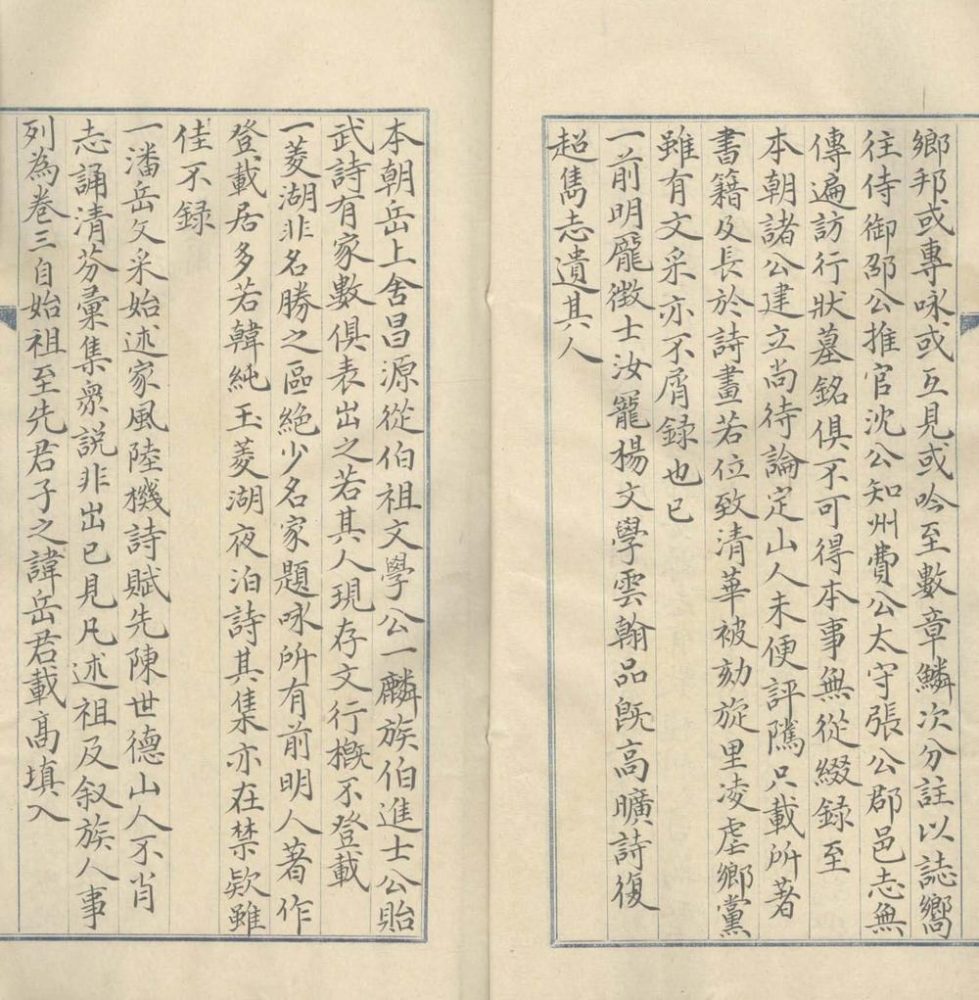 鄉邦或專咏或互見或吟至數章鱗次分註以誌嚮
往侍御邵公推官沈公知州費公太守張公郡邑志無
傳遍訪行狀墓銘俱不可得本事無從綴録至
本朝諸公建立尚待論定山人未便評隲只載所著
書籍及長於詩畫若位致清華被劾旋里凌虐鄉黨
雖有文采亦不屑録也已
一前明龐徵士汝寵楊文學雲翰品旣高曠詩復
超雋志遺其人
本朝岳上舍昌源從伯祖文學公一麟族伯進士公貽
武詩有家數俱表出之若其人現存文行槪不登載
一菱湖非名勝之區絶少名家題咏所有前明人著作
登載居多若韓純玉菱湖夜泊詩其集亦在禁欵雖
佳不録
一潘岳文采始述家風陸機詩賦先陳世德山人不肖
志誦清芬彙集衆説非出已見凡述祖及叙族人事
列為卷三自始祖至先君子之諱岳君載高填入